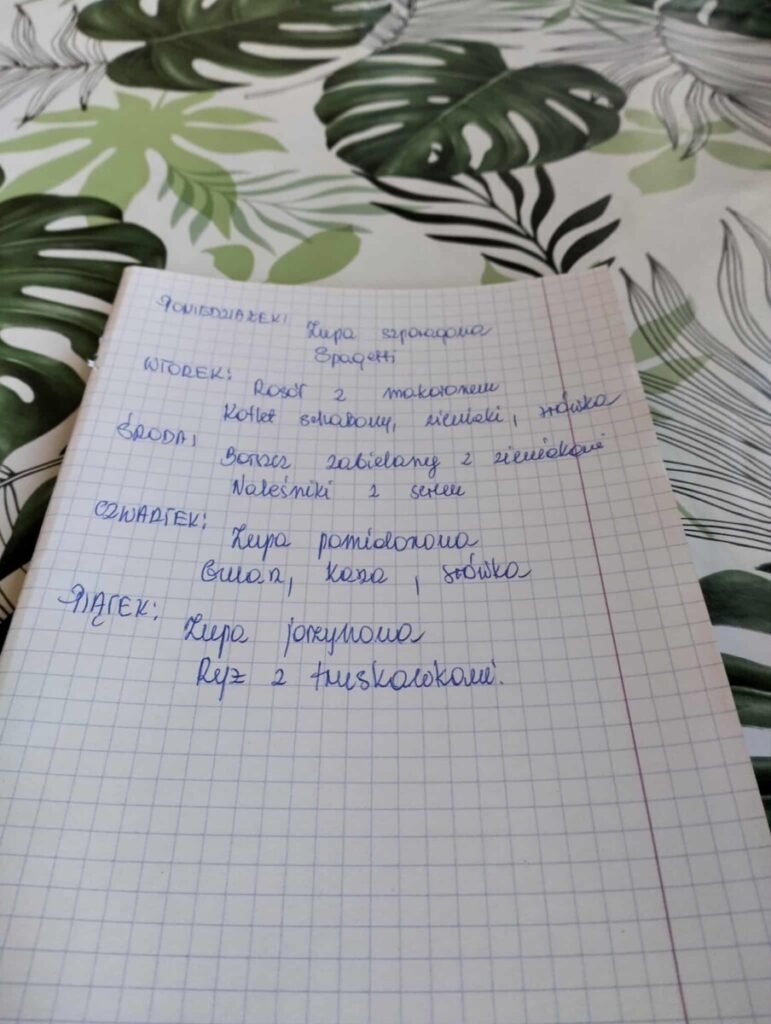 PONIEDZIAŁEK:
Zupa szparagowa
Spagetti
WTOREK:
Rosół z makaronem
Kotlet schabowy, ziemiaki, srówka
ŚRODA:
Barszcz zabielany z ziemiakami
Naleśniki z serem
CZWARTEK:
Zupa pomidorowa
Gulasz, Kasza, srówka
PIĄTEK:
Zupa jarzynowa
Ryż z truskawkami.